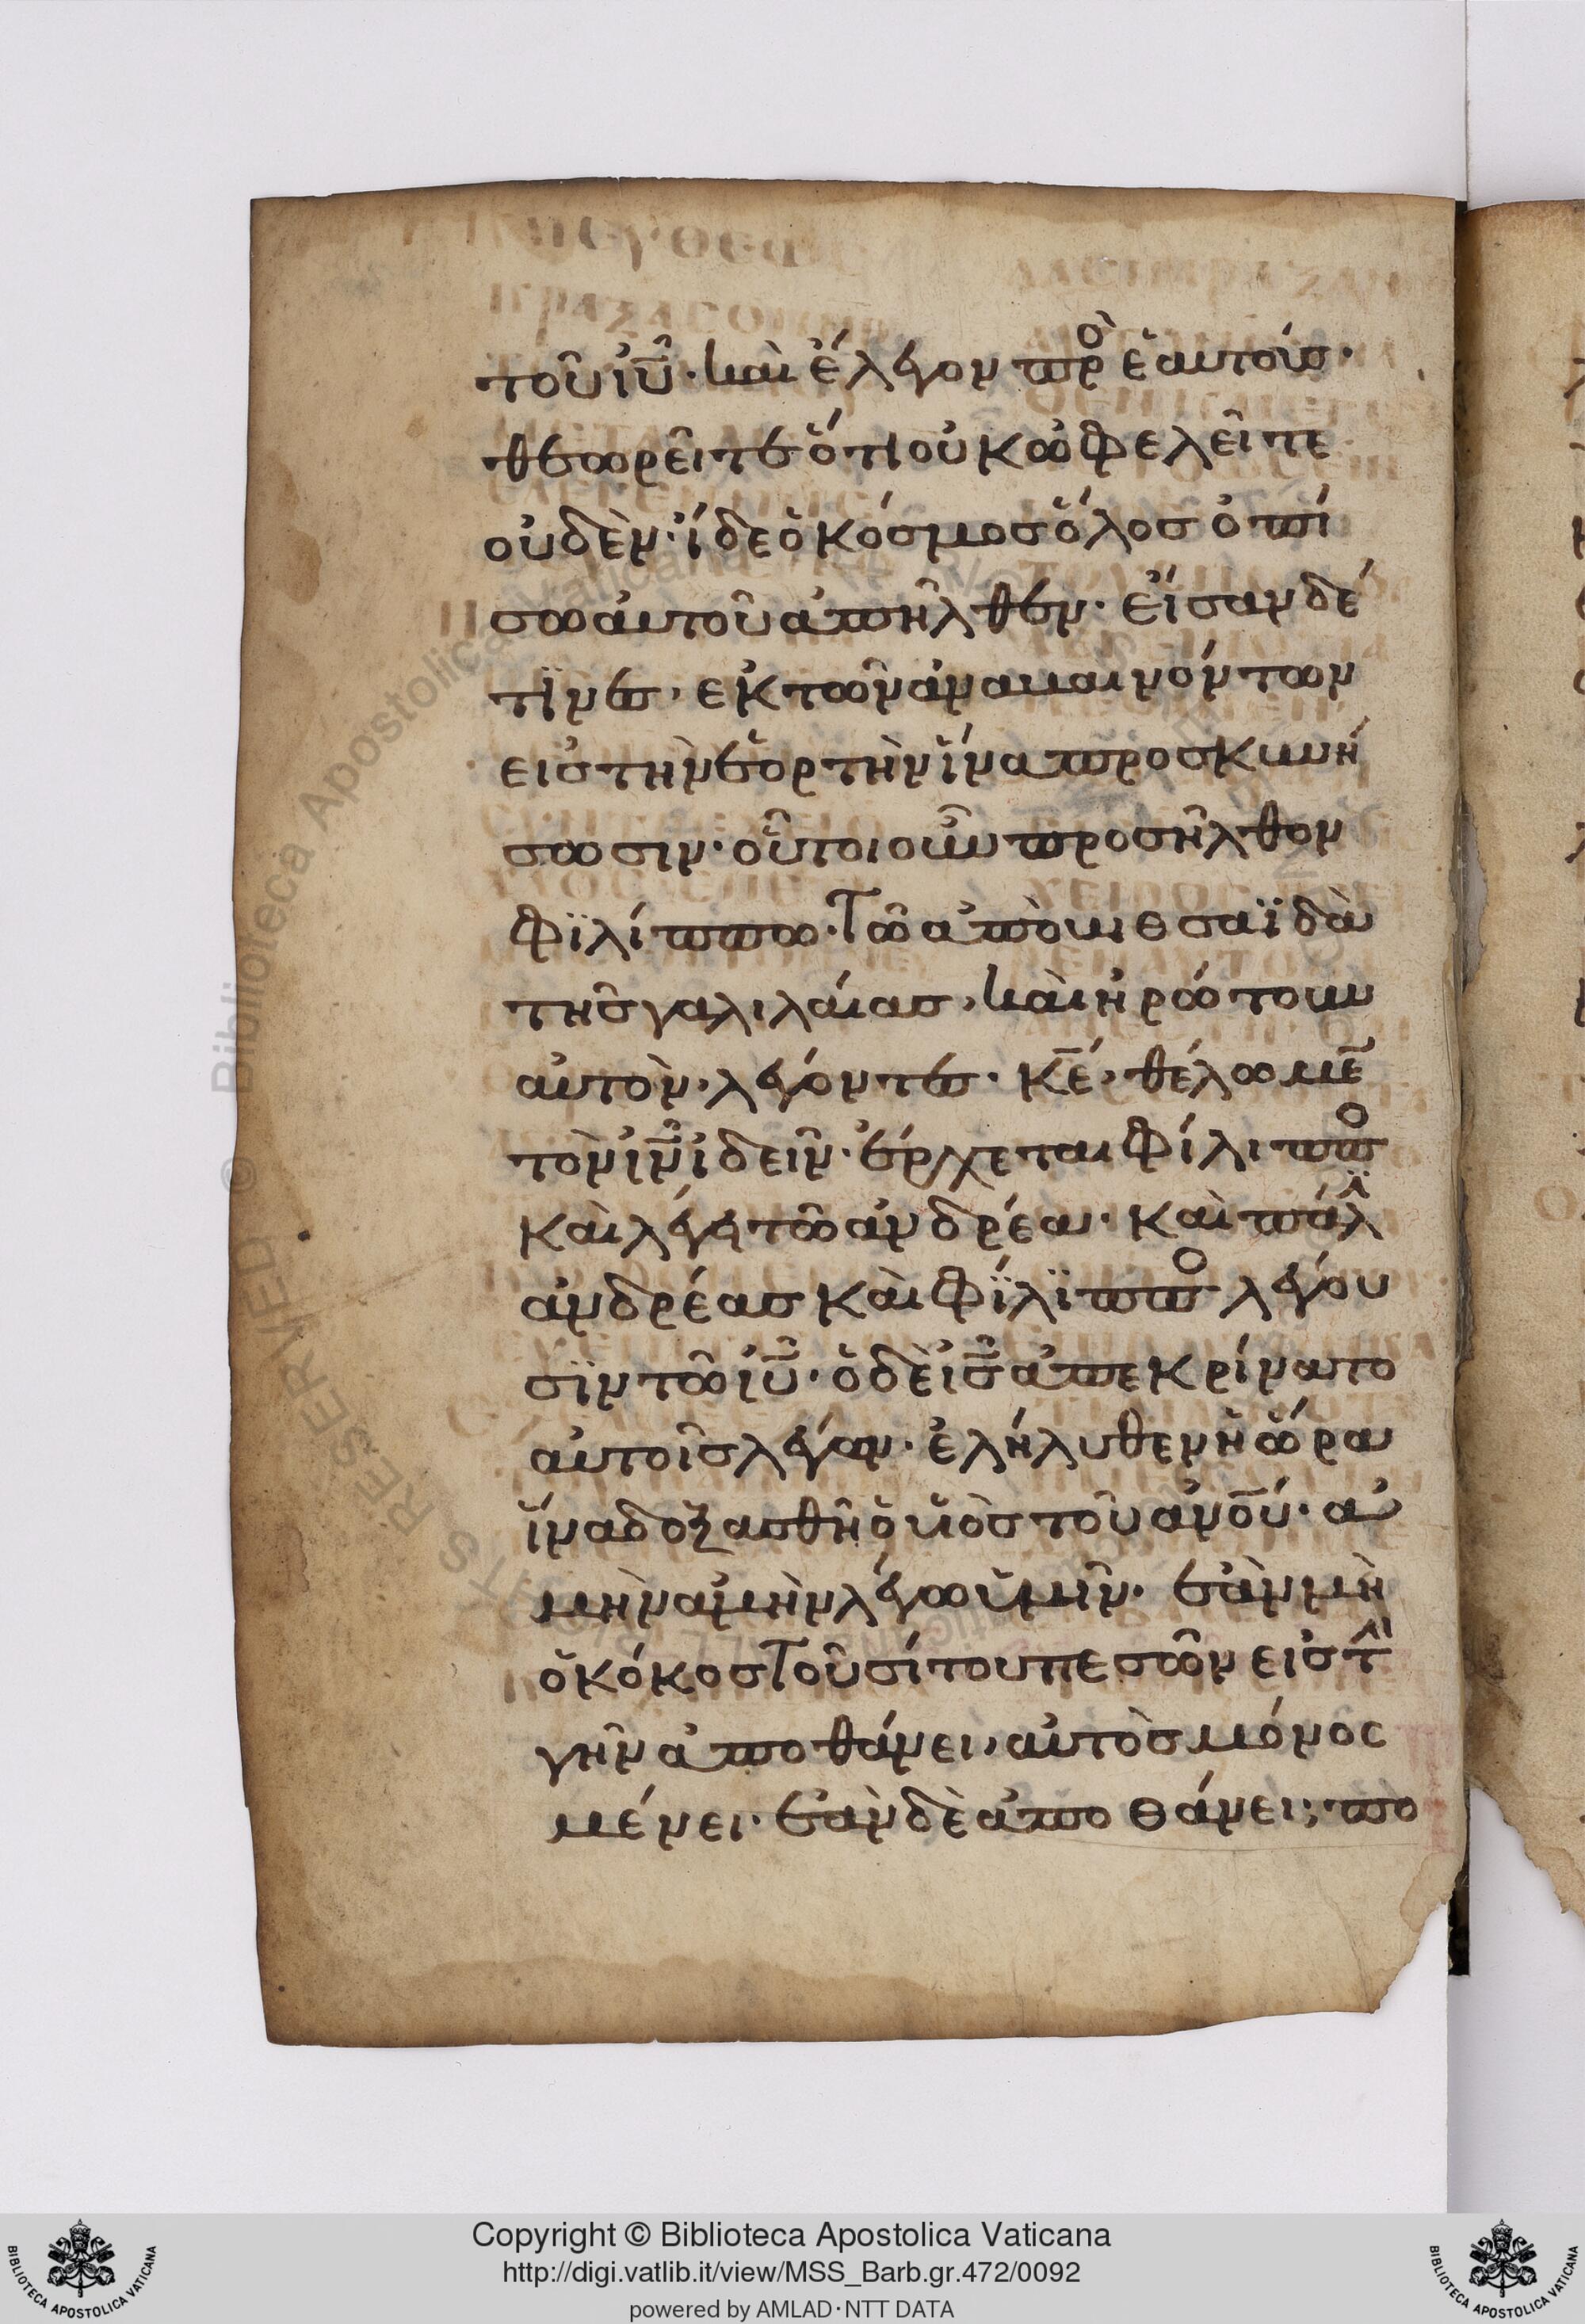 τοῦ ἰῦ· καὶ ἔλεγον πρὸ ἑαυτούσ·
θεωρεῖτε ὅτι οὐκ ὠφελεῖτε
οὐδὲν· ἴδε ὁ κόσμοσ ὅλοσ ὀπί
σω αὐτοῦ ἀπῆλθεν· εἴσαν δέ
τϊνεσ, εκ τῶν ἀναμαινόντων
εισ τὴν ἑορτὴν ἵνα προσκυνή
σωσιν· οὗτοι οὖν προσῆλθον
Φϊλίππω· τῶ ἀπὸ βιθσαϊδὰ
τῆσ γαλιλαίασ, καὶ ἠρώτουν
αὐτὸν, λέγοντεσ· κ̅ε̅, θέλωμε̅
τὸν ἰν̅ ἰδεῖν· ἔρχεται Φίλιππο
καὶ λέγει τῶ ἀνδρέα· καὶ πάλϊ
ἀνδρέασ καὶ Φϊλϊππο λέγου
σϊν τῶ ἰυ̅· ὁ δὲ ἰσ̅ ἀπεκρίνατο
αὐτοῖσ λέγων· ἐλήλυθεν ἡ ὥρα
ἵνα δοξασθῆ ὁ υἱὸσ τοῦ ἀνο̅ύ· ἀ
μὴν ἀμὴν λέγω ὑμῖν· ἐὰν μὴ
ὁ κόκοσ τοῦ σίτου πεσῶν εἰσ τὴ
γῆν ἀποθάνει, αὐτὸσ μόνος
μένει· ἐὰν δὲ ἀποθάνει; πο
© Biblioteca Apostolica Vaticana
Copyright © Biblioteca Apostolica Vaticana
http://digi.vatlib.it/view/MSS_Barb.gr.472/0092
powered by AMLAD·NTT DATA
BIBLIOTECA APOSTOLICA VATICANA
BIBLIOTECA APOSTOLICA VATICANA